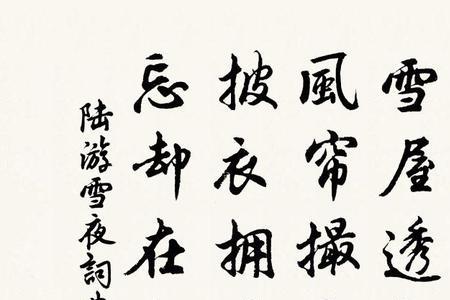 雪屋透
風帘撮
披衣拥
忘却在
陆游雪夜詞